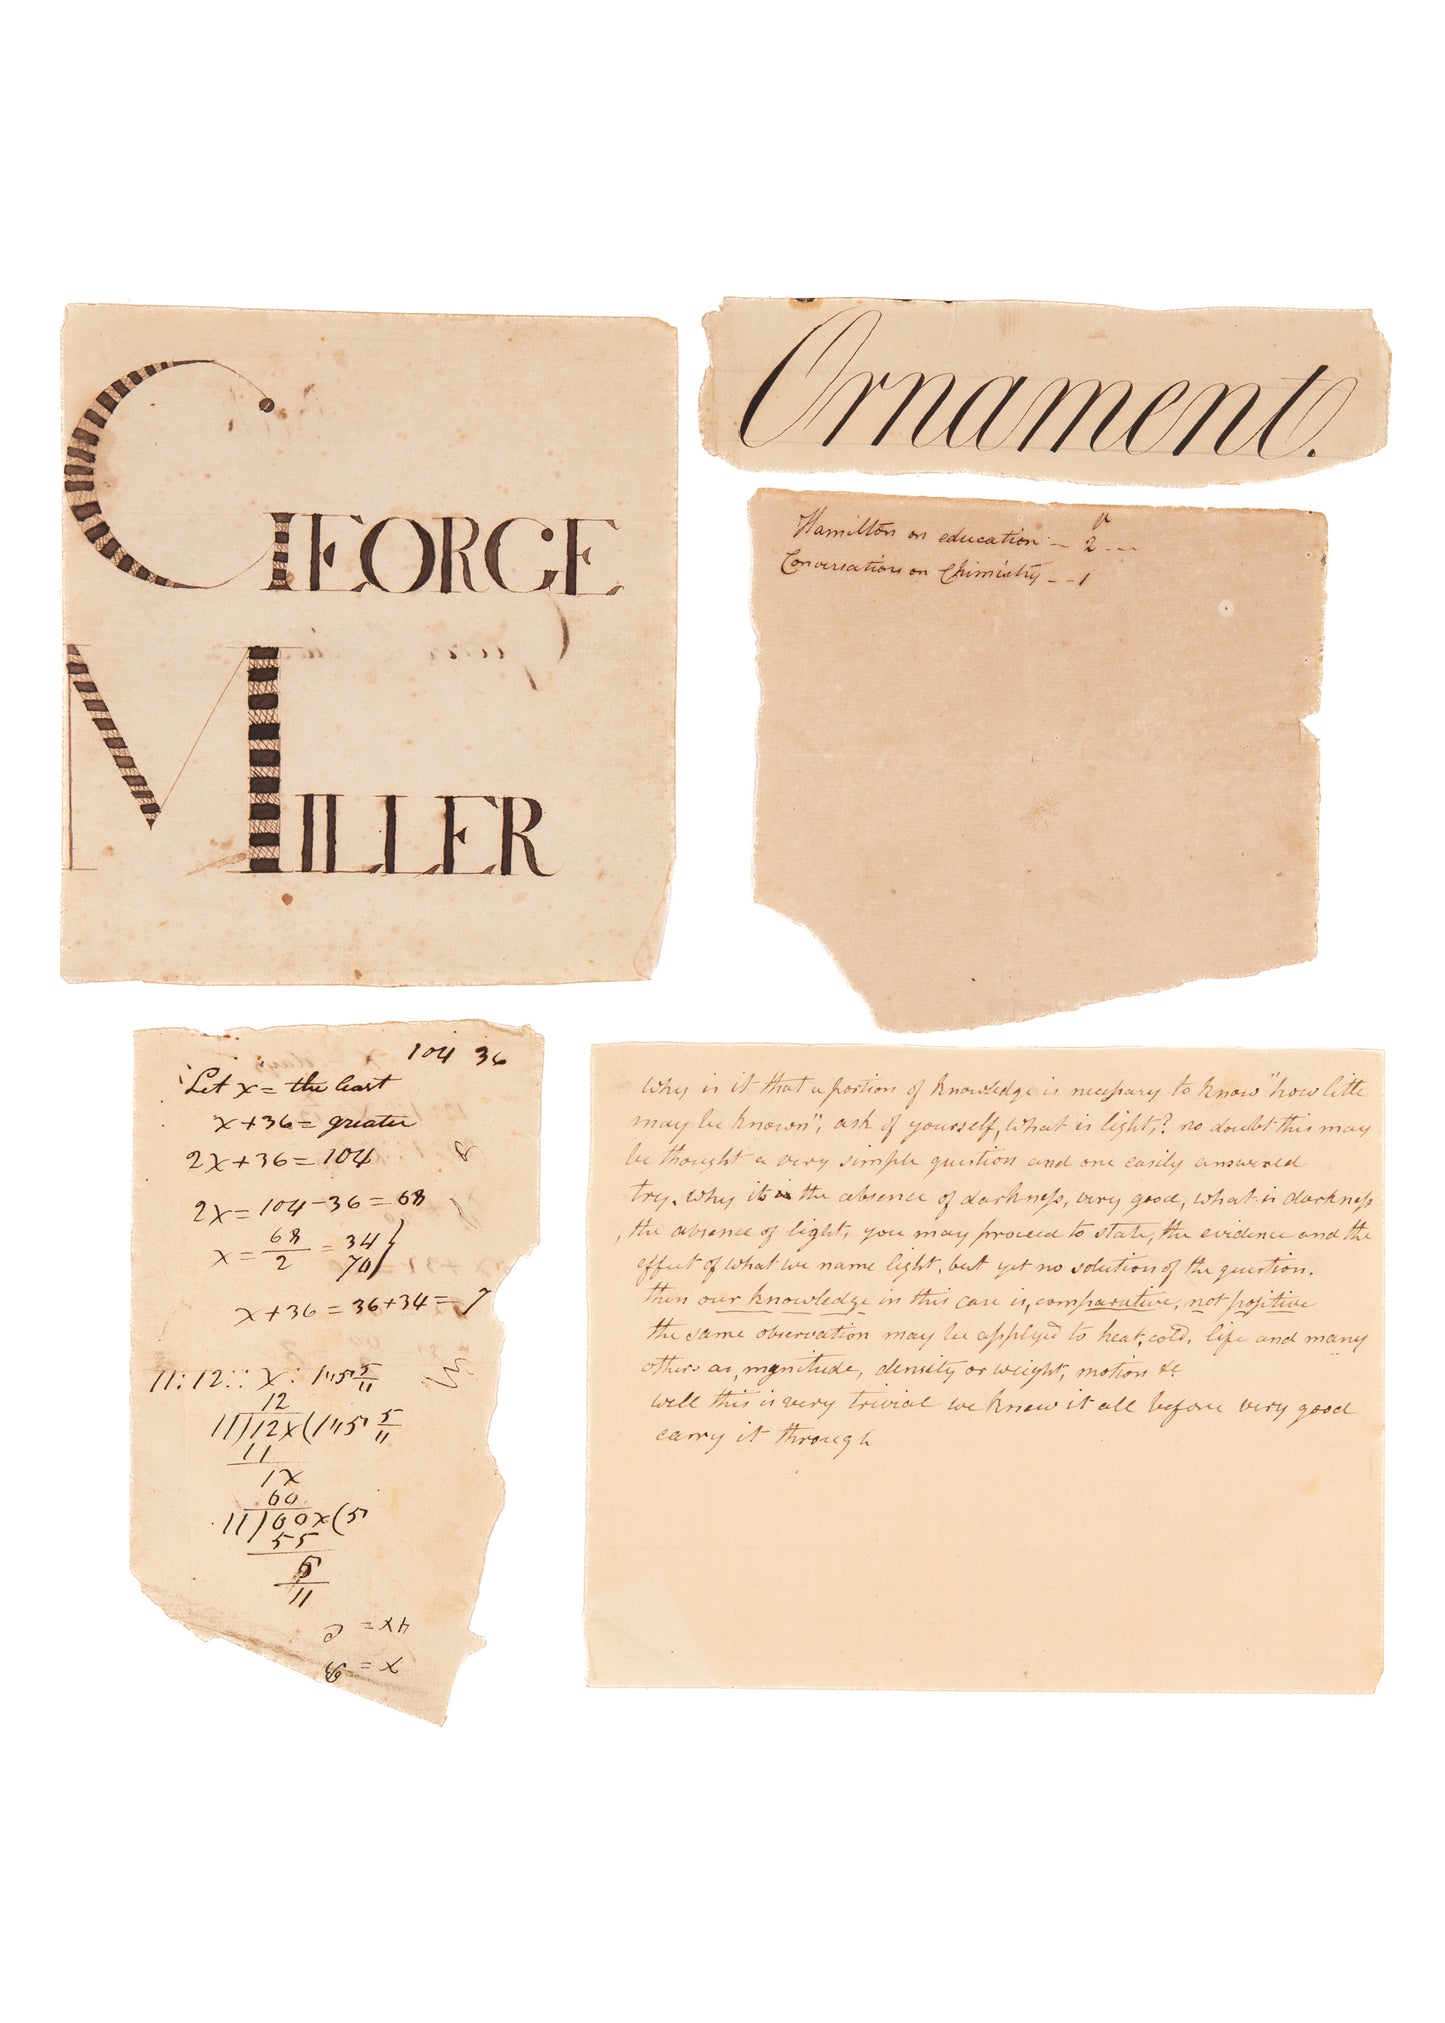 GEORGE
MILLER
Ornament.
v
Hamilton on education — 2 --
Conversations on Chimistry -- 1
104 36
Let x = the least
x+36 = greater
2x+36 = 104
2x = 104-36 = 68
x = 68/2 = 34
70
x+36 = 36+34 = 7
11:12:: x : 1"5 5/11
12
11)12x(1"5 5/11
11
1x
60
11)60x(5
55
5
11
4x =
x =
why is it that a portion of knowledge is necessary to know "how litle
may be known", ask of yourself, what is light,? no doubt this may
be thought a very simple question and one easily answered
try. why it is the absence of darkness, very good, what is darkness
, the absence of light, you may proceed to state, the evidence and the
effect of what we name light, but yet no solution of the question.
then our knowledge in this case is, comparative, not positive
the same observation may be applyed to heat, cold, life and many
others as, mgnitude, density or weight, motion &c
well this is very trivial we knew it all before very good
carry it through